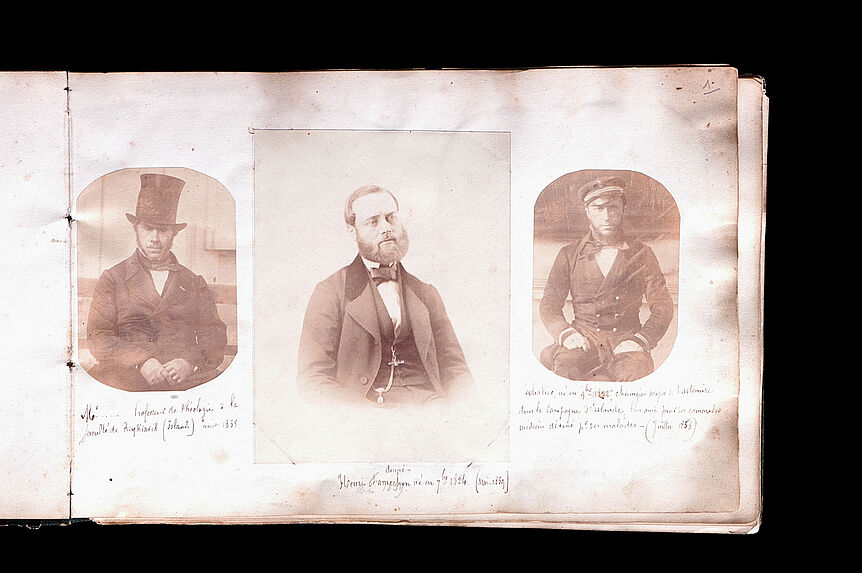 1.
Mr ..... Professeur de Théologie à la
faculté de Reykiavik (Islande) août 1858.
donné
Henri né en 7bre 1824 (Mai 1859)
né en 9bre changier major à l'Artémise
dans la Campagne d'Islande, bon ami pour ses camarades
médecin dévoué pr ses malades - (Juillet 1858)